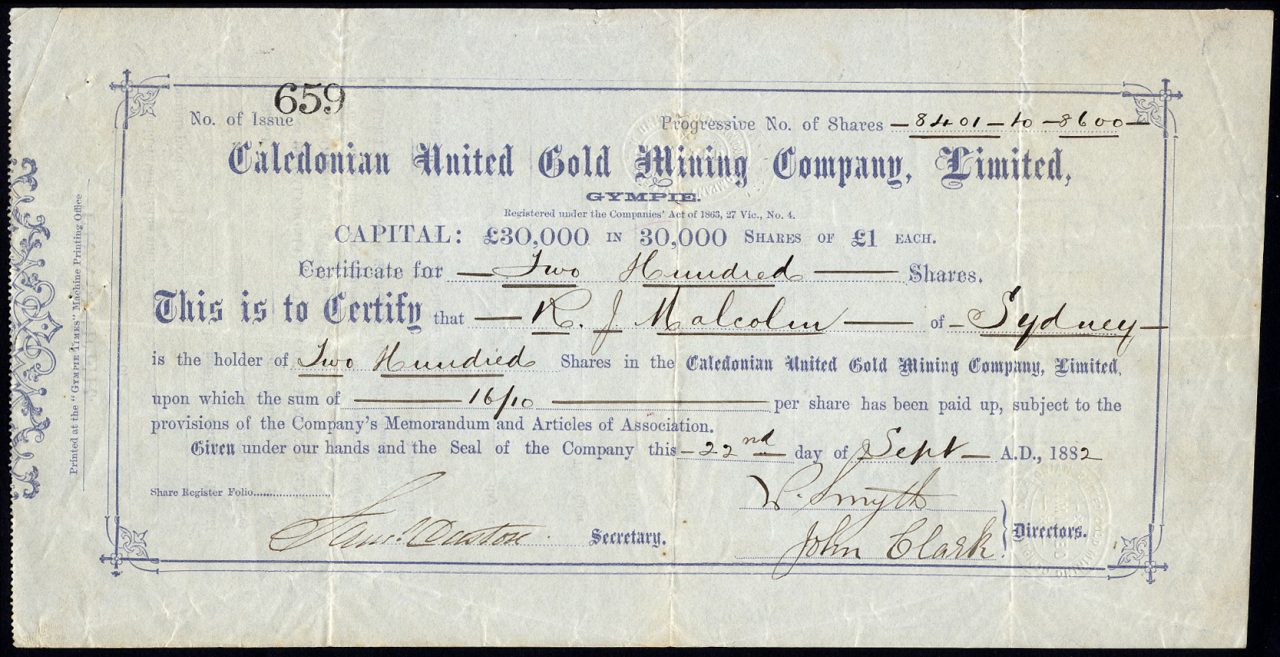 659
No. of Issue
Progressive No. of Shares 8401 to 8600
Caledonian United Gold Mining Company, Limited,
GYMPIE.
Registered under the Companies' Act of 1863, 27 Vic., No. 4.
CAPITAL: £30,000 IN 30,000 SHARES OF £1 EACH.
Certificate for Two Hundred Shares.
This is to Certify that R. J Malcolm of Sydney
is the holder of Two Hundred Shares in the Caledonian United Gold Mining Company, Limited,
upon which the sum of 16/10 per share has been paid up, subject to the
provisions of the Company's Memorandum and Articles of Association.
Given under our hands and the Seal of the Company this 22nd day of Sept A.D., 1882
Share Register Folio
W. Smyth
Saml. Caston Secretary.
John Clark Directors.
Printed at the "GYMPIE TIMES" Machine Printing Office